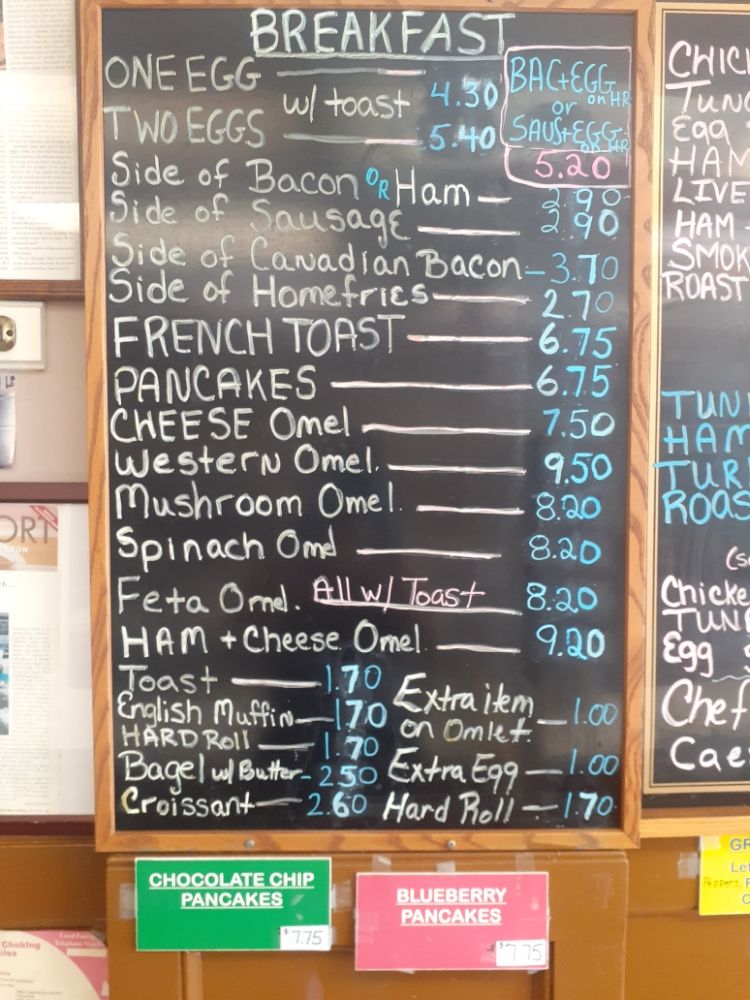 BREAKFAST
ONE EGG
w/ toast 4.30
TWO EGGS 5.40
BAC+EGG
on HR
or
SAUS+EGG
on HR
5.20
Side of Bacon OR Ham 2.90
Side of Sausage 2.90
Side of Canadian Bacon - 3.70
Side of Homefries 2.70
FRENCH TOAST 6.75
PANCAKES 6.75
CHEESE Omel 7.50
Western Omel. 9.50
Mushroom Omel. 8.20
Spinach Omel 8.20
Feta Omel. All w/ Toast 8.20
HAM + Cheese Omel. 9.20
Toast 1.70
English Muffin 1.70
HARD Roll 1.70
Bagel w/ Butter - 2.50
Croissant 2.60
Extra item
on Omlet. 1.00
Extra Egg 1.00
Hard Roll 1.70
CHOCOLATE CHIP
PANCAKES
$7.75
BLUEBERRY
PANCAKES
$7.75
TUN
HAM
LIVE
HAM
SMOK
ROAST
TUN
HAM
TUR
ROAS
Chicke
TUN
Egg
Chef
Cae
GR
Peppers,
ORT
Choking